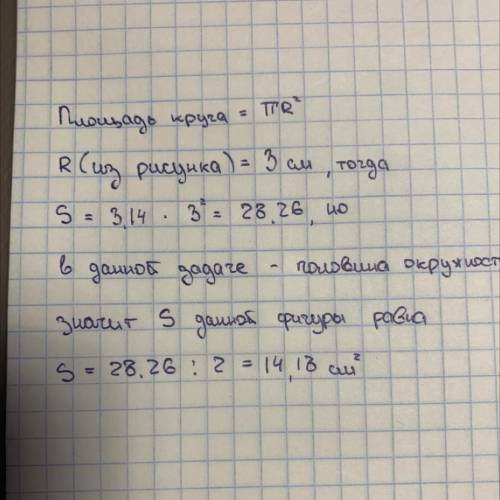 Площадь круга = πR²
R (из рисунка) = 3 см, тогда
S = 3,14 · 3² = 28.26, но
в данной задаче - половина окружност
значит S данной фигуры равна
S = 28.26 : 2 = 14,13 см²